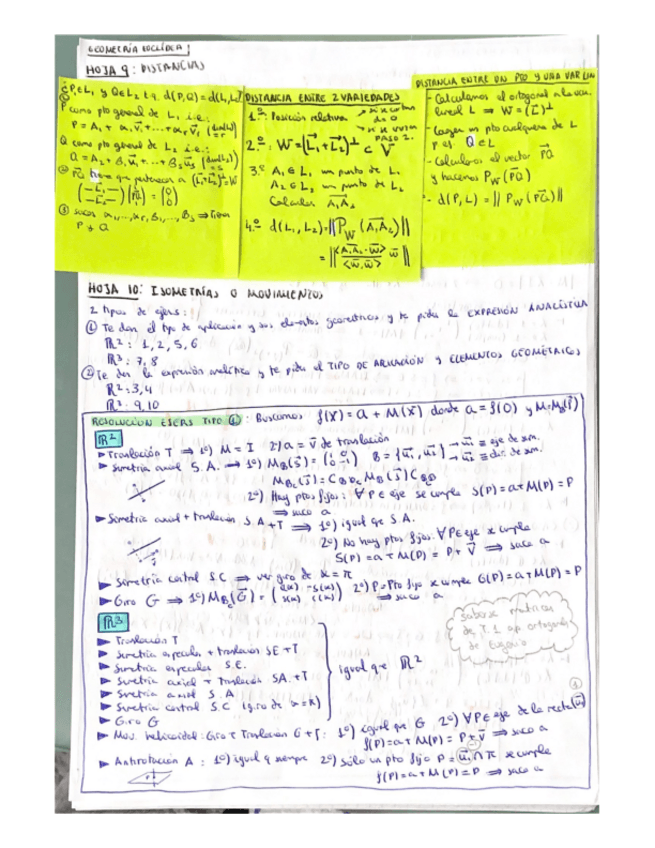 GEOMETRÍA EUCLÍDEA
HOJA 9: DISTANCIAS
¿P∈L₁ y Q∈L₂ t.q. d(P,Q)=d(L₁,L₂)?
P como pto general de L₁ i.e.:
P = A₁ + α₁v₁+...+αᵣvᵣ
Q como pto general de L₂ i.e.:
② PQ tiene que pertenecer a (L₁+L₂)⊥=W
③ sacar α₁,...,αᵣ, β₁,...,βₛ ⇒ tienes
P y Q
DISTANCIA ENTRE 2 VARIEDADES
1.º: Posición relativa → si se cortan d=0
PASO 2.
2.º: W=(L₁+L₂)⊥ ⊂ V
3.º A₁∈L₁ un punto de L₁
A₂∈L₂ un punto de L₂
Calcular A₁A₂
4.º d(L₁,L₂)=||P_W(A₁A₂)||
= ||<A₁A₂·w>/<w,w> w||
DISTANCIA ENTRE UN PTO Y UNA VAR LIN
- Calculamos el ortogonal a la var.
lineal L ⇒ W=(L)⊥
- Cogemos un pto cualquiera de L
p.ej. Q∈L
- Calculamos el vector PQ
y hacemos P_W(PQ)
- d(P,L) = ||P_W(PQ)||
HOJA 10: ISOMETRÍAS O MOVIMIENTOS
2 tipos de ejers:
① Te dan el tipo de aplicación y sus elementos geométricos y te piden la EXPRESIÓN ANALÍTICA
ℝ²: 1, 2, 5, 6
ℝ³: 7, 8
② Te dan la expresión analítica y te piden el TIPO DE APLICACIÓN y ELEMENTOS GEOMÉTRICOS
ℝ²: 3, 4
ℝ³: 9, 10
RESOLUCIÓN EJERS TIPO ①: Buscamos f(X)=a+M(X) donde a=f(0) y
ℝ²
► Translación T ⇒ 1º) M=I 2º) a=v de translación
► Simetría axial S.A. ⇒ 1º) M_B(S)=(1 0 0 -1) B={u₁,u₂} → u₁ ≡ eje de sim.
→ u₂ ≡ dir. de sim.
2º) Hay ptos fijos: ∀P∈eje se cumple S(P)=a+M(P)=P
⇒ saco a
► Simetría axial + translación S.A+T ⇒ 1º) igual que S.A.
2º) No hay ptos fijos. ∀P∈eje se cumple
S(P)=a+M(P)=P+v ⇒ saco a
► Simetría central S.C ⇒ ver giro de α=π
► Giro G ⇒ 1º) 2º) P=Pto fijo se cumple G(P)=a+M(P)=P
⇒ saco a
saberse matrices
de T.1 ap ortogonales
ℝ³
► Translación T
► Simetría especular + translación SE+T
► Simetría especular S.E.
► Simetría axial + Translación SA.+T
► Simetría axial S.A
► Simetría central S.C
► Giro G
igual que ℝ²
► Mov. helicoidal: Giro + Translación G+T: 1º) igual que G 2º) ∀P∈eje de la recta(u₁)
f(P)=a+M(P)=P+v ⇒ saco a
► Antirotación A: 1º) igual q siempre 2º) sólo un pto fijo P=u₁∩π se cumple
f(P)=a+M(P)=P ⇒ saco a